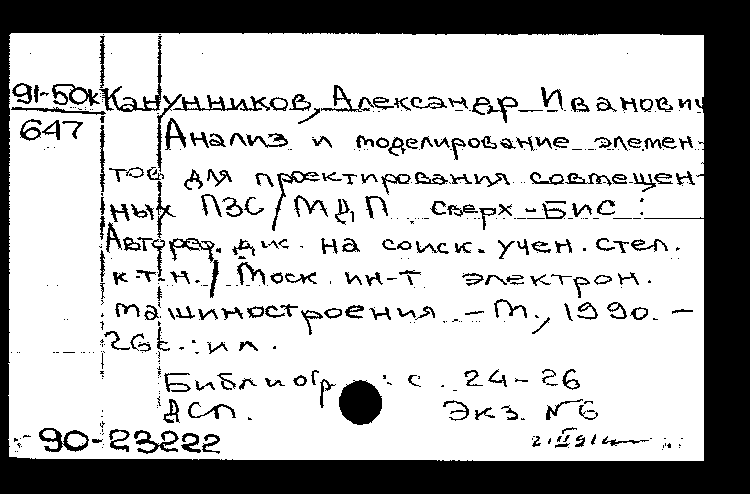 91-50к Канунников, Александр Иванович
647 Анализ и моделирование элемен-
тов для проектирования совмещен-
ных ПЗС/МДП сверх-БИС :
Автореф. дис. на соиск. учен. степ.
к.т.н. / Моск. ин-т электрон.
машиностроения. - М., 1990. -
26с. : ил.
Библиогр.: с. 24-26
ДСП. Экз. №6
90-23222